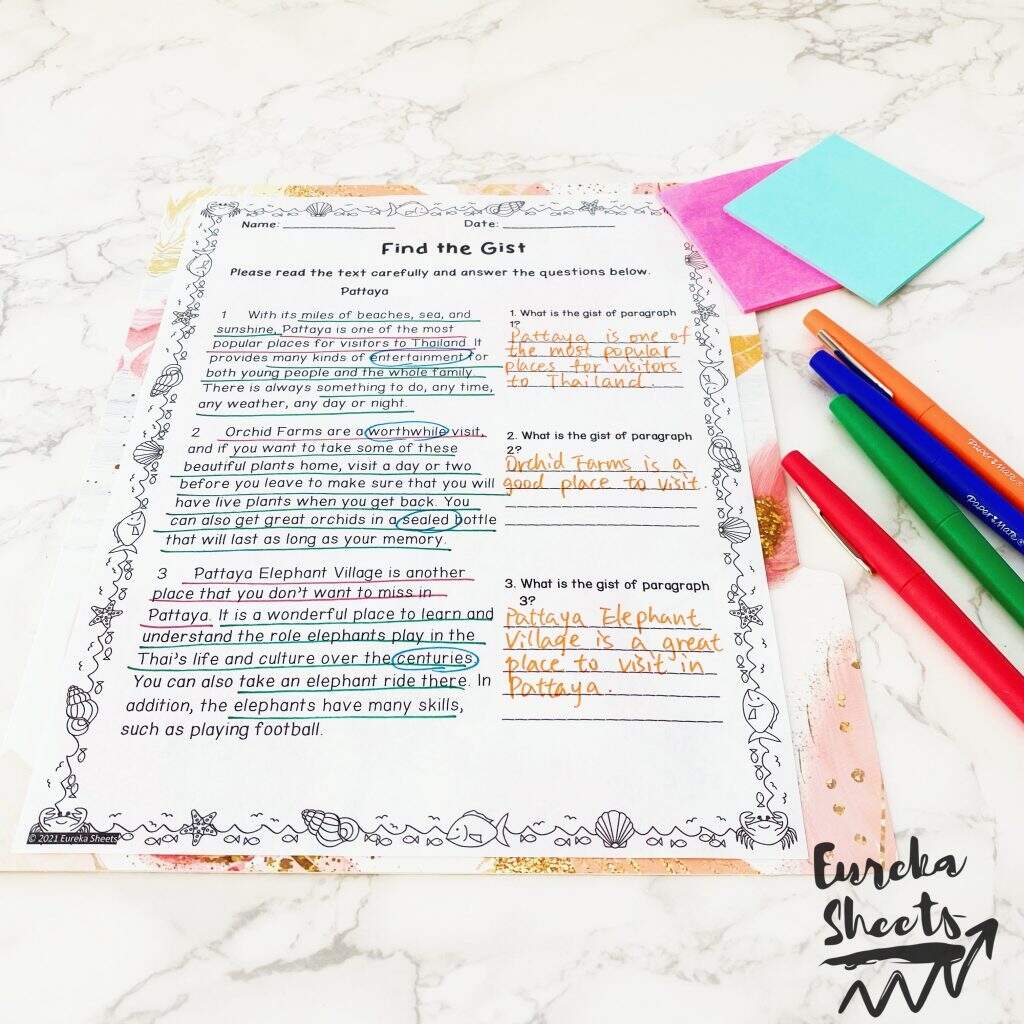 Name: Date:
Find the Gist
Please read the text carefully and answer the questions below.
Pattaya
1 With its miles of beaches, sea, and
sunshine, Pattaya is one of the most
popular places for visitors to Thailand. It
provides many kinds of entertainment for
both young people and the whole family.
There is always something to do, any time,
any weather, any day or night.
1. What is the gist of paragraph
1?
Pattaya is one of
the most popular
places for visitors
to Thailand.
2 Orchid Farms are a worthwhile visit,
and if you want to take some of these
beautiful plants home, visit a day or two
before you leave to make sure that you will
have live plants when you get back. You
can also get great orchids in a sealed bottle
that will last as long as your memory.
2. What is the gist of paragraph
2?
Orchid Farms is a
good place to visit
3 Pattaya Elephant Village is another
place that you don't want to miss in
Pattaya. It is a wonderful place to learn and
understand the role elephants play in the
Thai's life and culture over the centuries.
You can also take an elephant ride there. In
addition, the elephants have many skills,
such as playing football.
3. What is the gist of paragraph
3?
Pattaya Elephant
Village is a great
place to visit in
Pattaya.
© 2021 Eureka Sheets
Paper Mate
Paper Mate
Eureka
Sheets